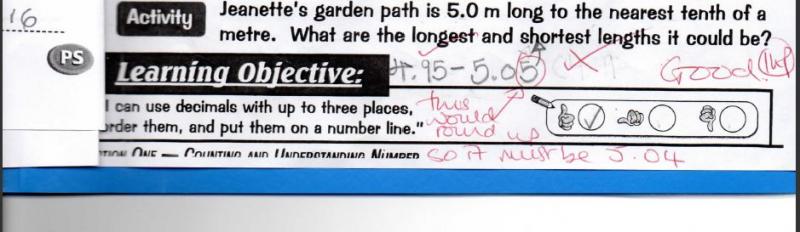 16
Activity Jeanette's garden path is 5.0 m long to the nearest tenth of a
metre. What are the longest and shortest lengths it could be?
PS
Learning Objective: 4.95-5.05
Good!
I can use decimals with up to three places,
order them, and put them on a number line."
this
would
round up
so it must be 5.04
TION ONE — COUNTING AND UNDERSTANDING NUMBER